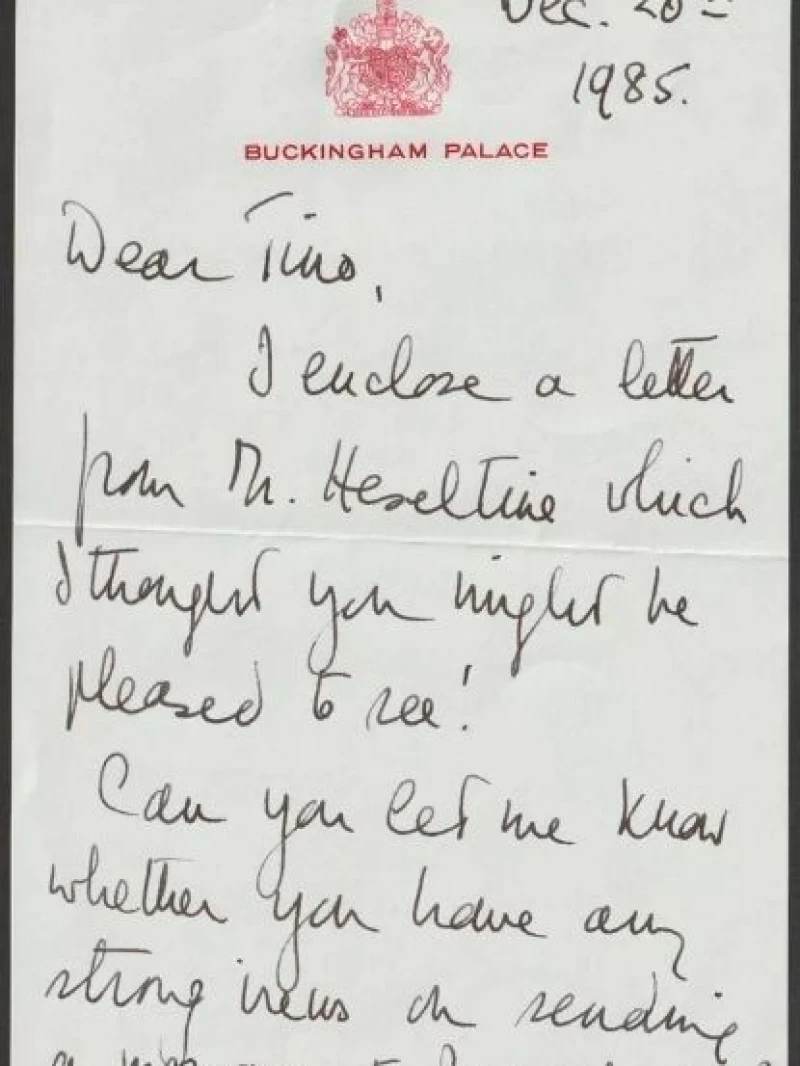 Dec. 20th
1985.
BUCKINGHAM PALACE
Dear Tino,
I enclose a letter
from Mr. Heseltine which
I thought you might be
pleased to see!
Can you let me know
whether you have any
strong views on sending
a